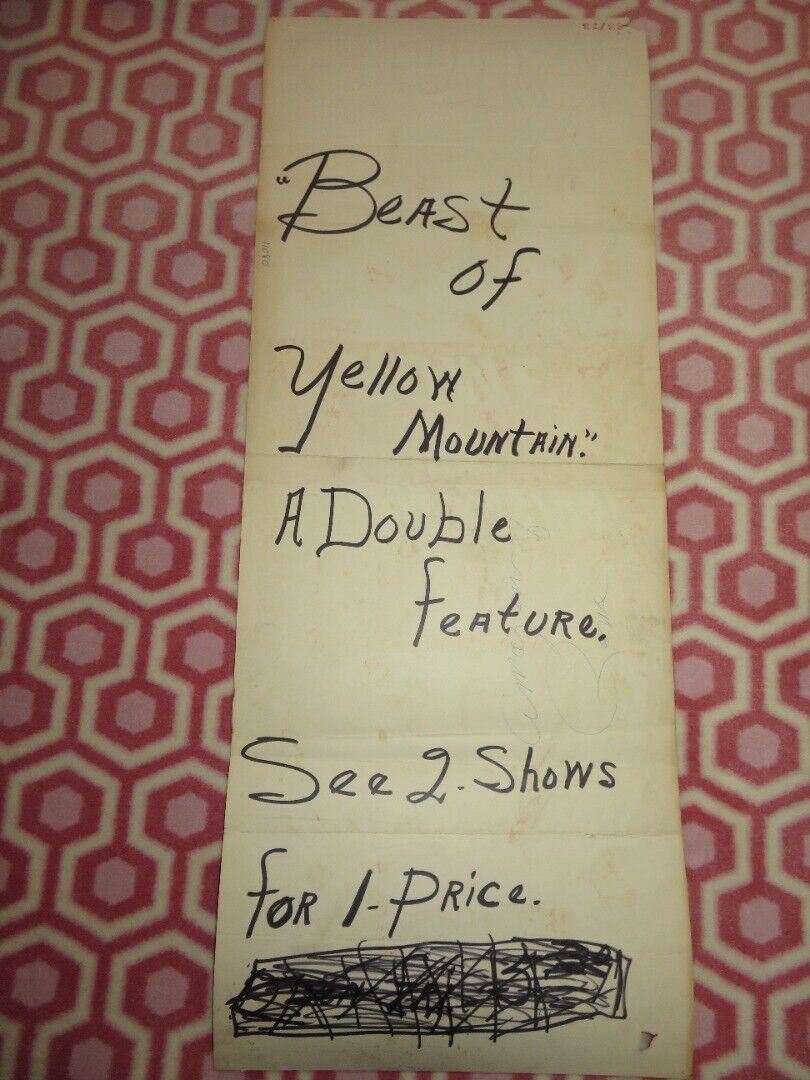 "Beast
of
Yellow
Mountain."
A Double
feature.
See 2. Shows
for 1-Price.